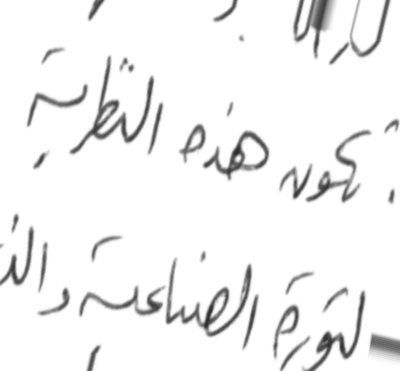 تكون هذه النظرية
الثورة الصناعية و